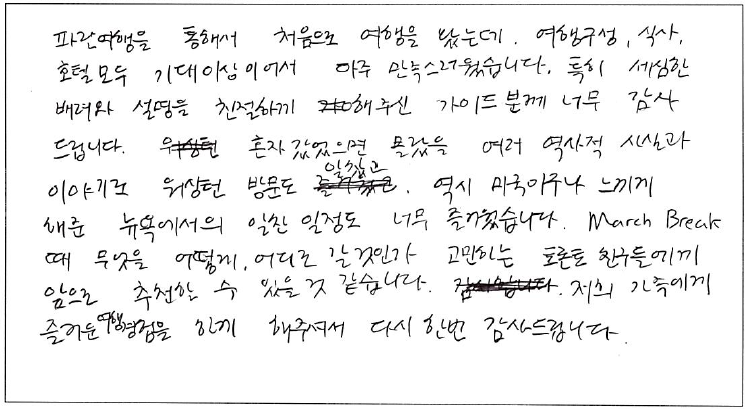 파란여행을 통해서 처음으로 여행을 왔는데, 여행구성, 식사,
호텔 모두 기대이상이어서 아주 만족스러웠습니다. 특히 세심한
배려와 설명을 친절하게 해주신 가이드분께 너무 감사
드립니다. 혼자 갔었으면 몰랐을 여러 역사적 사실과
이야기로 워싱턴 방문도 알찼고, 역시 미국이구나 느끼게
해준 뉴욕에서의 알찬 일정도 너무 즐거웠습니다. March Break
때 무엇을 어떻게, 어디로 갈것인가 고민하는 토론토 친구들에게
앞으로 추천할 수 있을것 같습니다. 저희 가족에게
즐거운 여행경험을 함께 해주셔서 다시한번 감사드립니다.